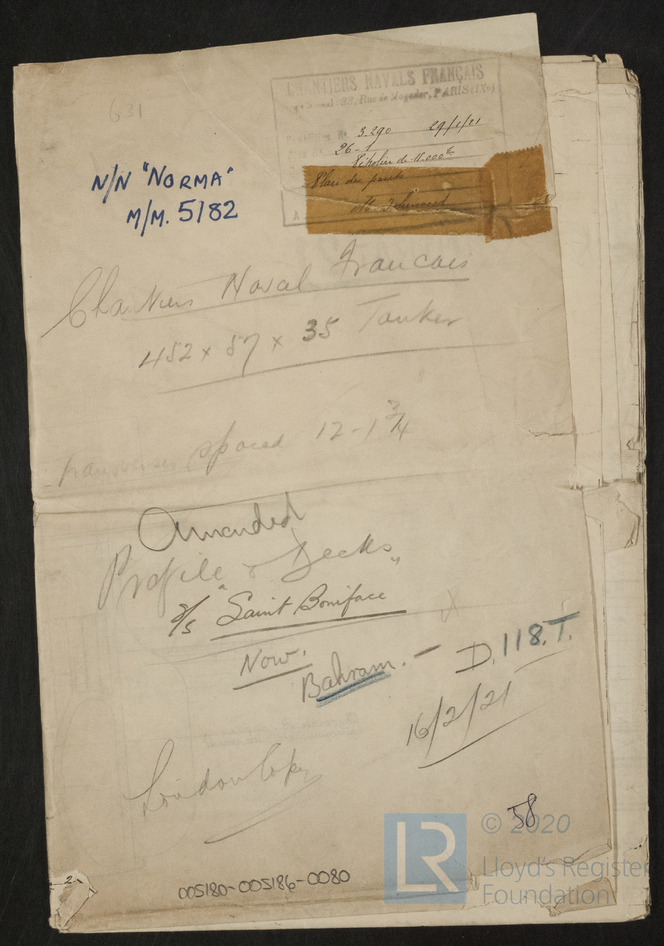 631
CHANTIERS NAVALS FRANÇAIS
33, Rue de Mogador, PARIS (IXe)
3.290 29/1/21
26-1
Plan des ponts
N/N "NORMA"
M/M. 5182
Chantiers Naval Francais
452 x 57 x 35 Tanker
transverses spaced 12-1 3/4
Amended
Profile & Decks
S/S "Saint Boniface"
Now.
Bahram. - D.118.T.
16/2/21
London Copy
58
2
005180-005186-0080
LR
© 2020
Lloyd's Register
Foundation